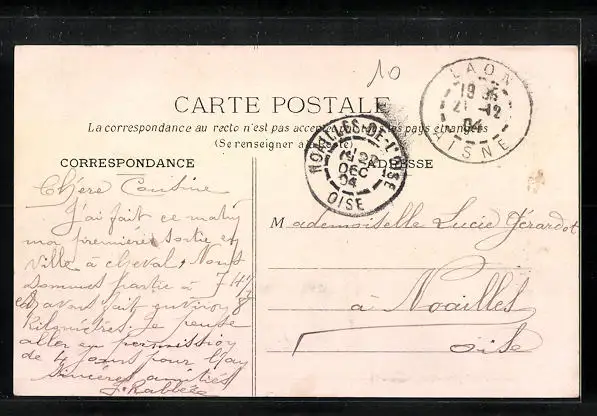 10
CARTE POSTALE
La correspondance au recto n'est pas acceptée par tous les pays étrangers
(Se renseigner à la Poste)
CORRESPONDANCE
ADRESSE
LAON
19 35
21 -12
04
AISNE
NOAILLES-DE-L'OISE
22
DEC
04
OISE
Chère Cousine
J'ai fait ce matin
ma première sortie en
ville à cheval, Nous
sommes partie à 7 h
et avons fait environ 8
kilomètres. Je pense
aller en permission
de 4 jours pour
sincères amitiés
Mademoiselle Lucie Gérardot
à Noailles
Oise